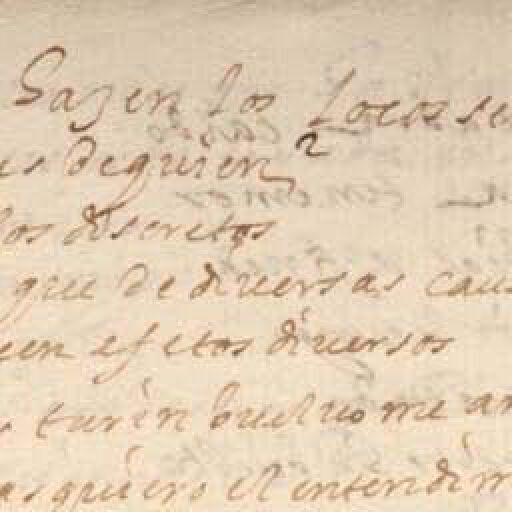 Gazen los Locos se
es de quien
los discretos
que de diuersas caus
en efetos diuersos
turin bueluo me an
as quiero el entendim